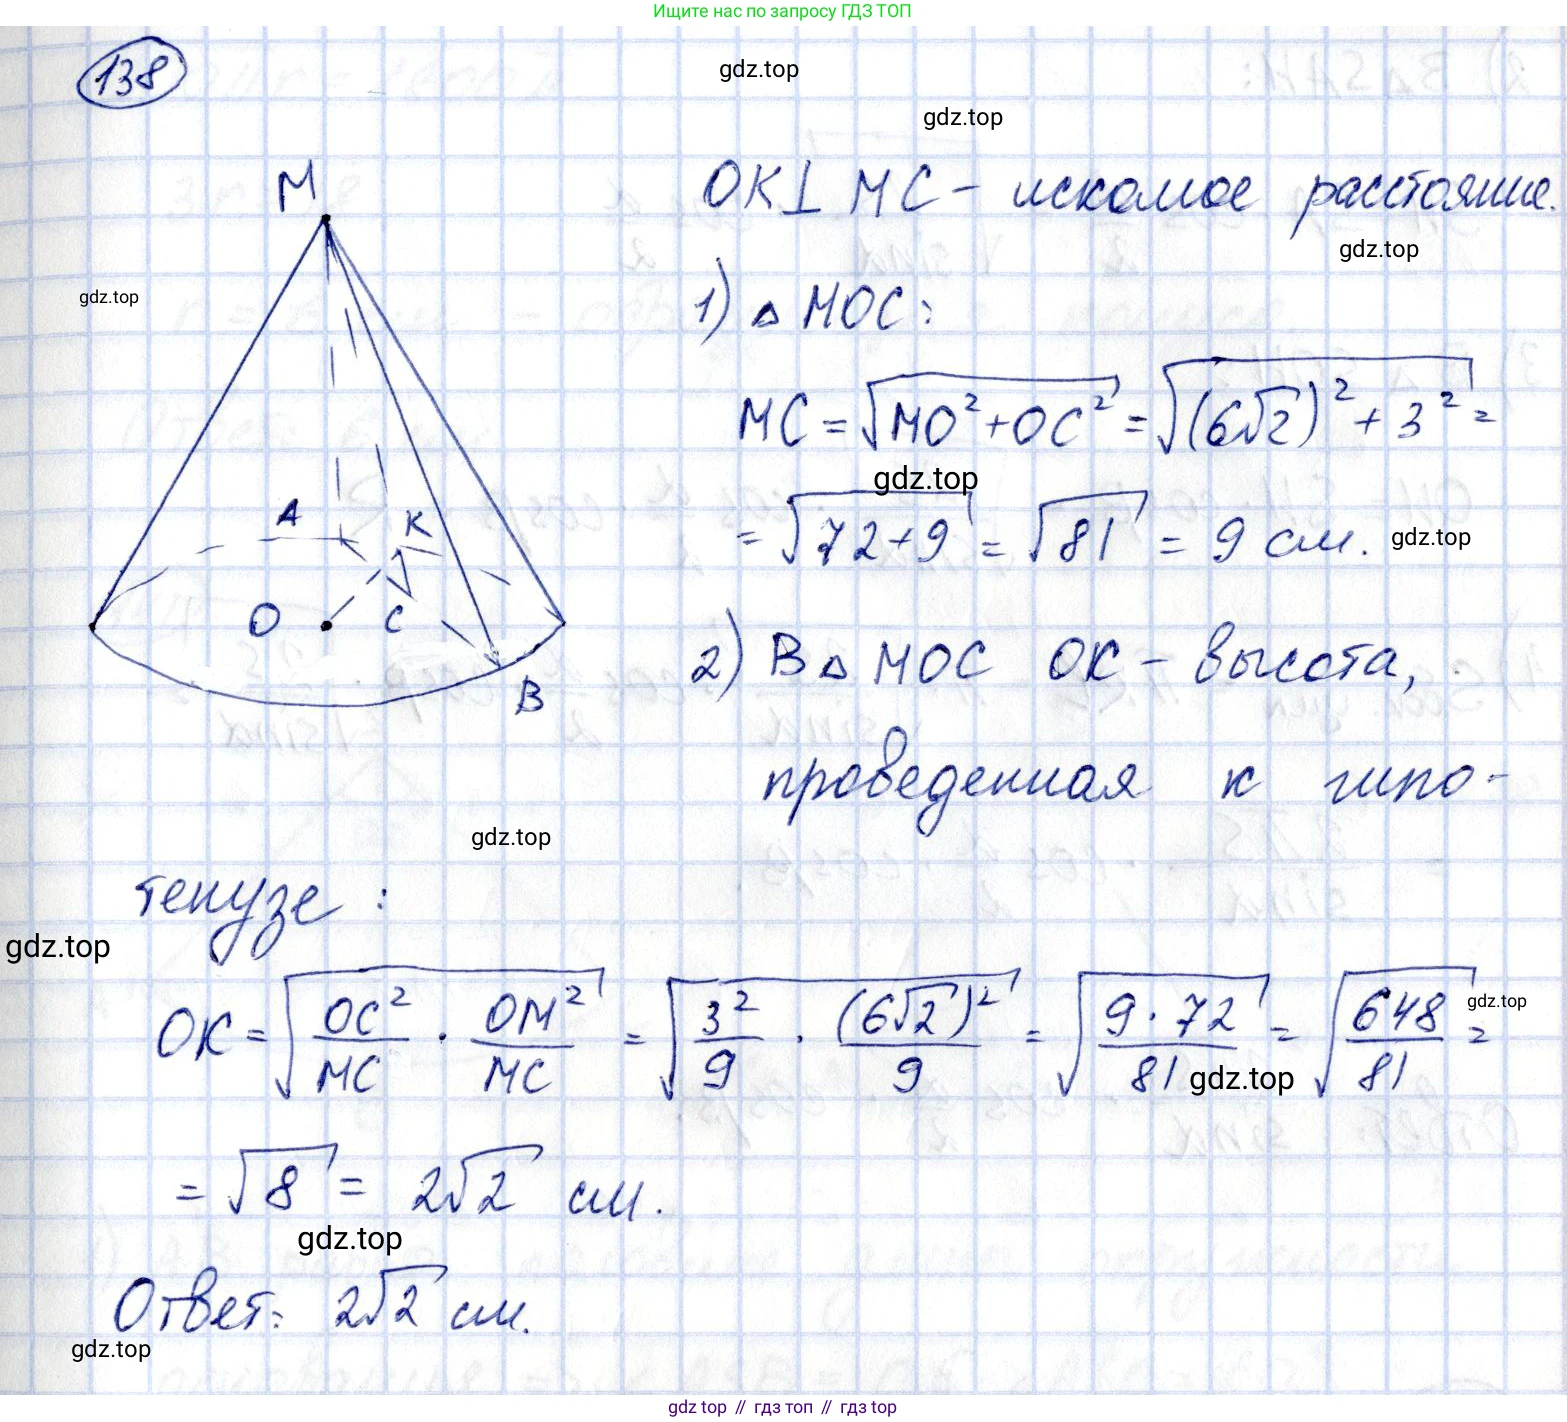 Ищите нас по запросу ГДЗ ТОП
138
gdz.top
gdz.top
M
OK⊥MC – искомое расстояние.
gdz.top
gdz.top
1) △MOC:
MC = √(MO² + OC²) = √((6√2)² + 3²) =
gdz.top
= √(72+9) = √81 = 9 см.
gdz.top
A
K
O
C
B
2) В △MOC OK – высота,
проведенная к гипо-
gdz.top
тенузе:
gdz.top
OK = √(OC²/MC · OM²/MC) = √(3²/9 · (6√2)²/9) = √(9·72/81) = √(648/81) =
gdz.top
gdz.top
= √8 = 2√2 см.
gdz.top
Ответ: 2√2 см.
gdz.top
gdz.top // гдз топ // гdz.top